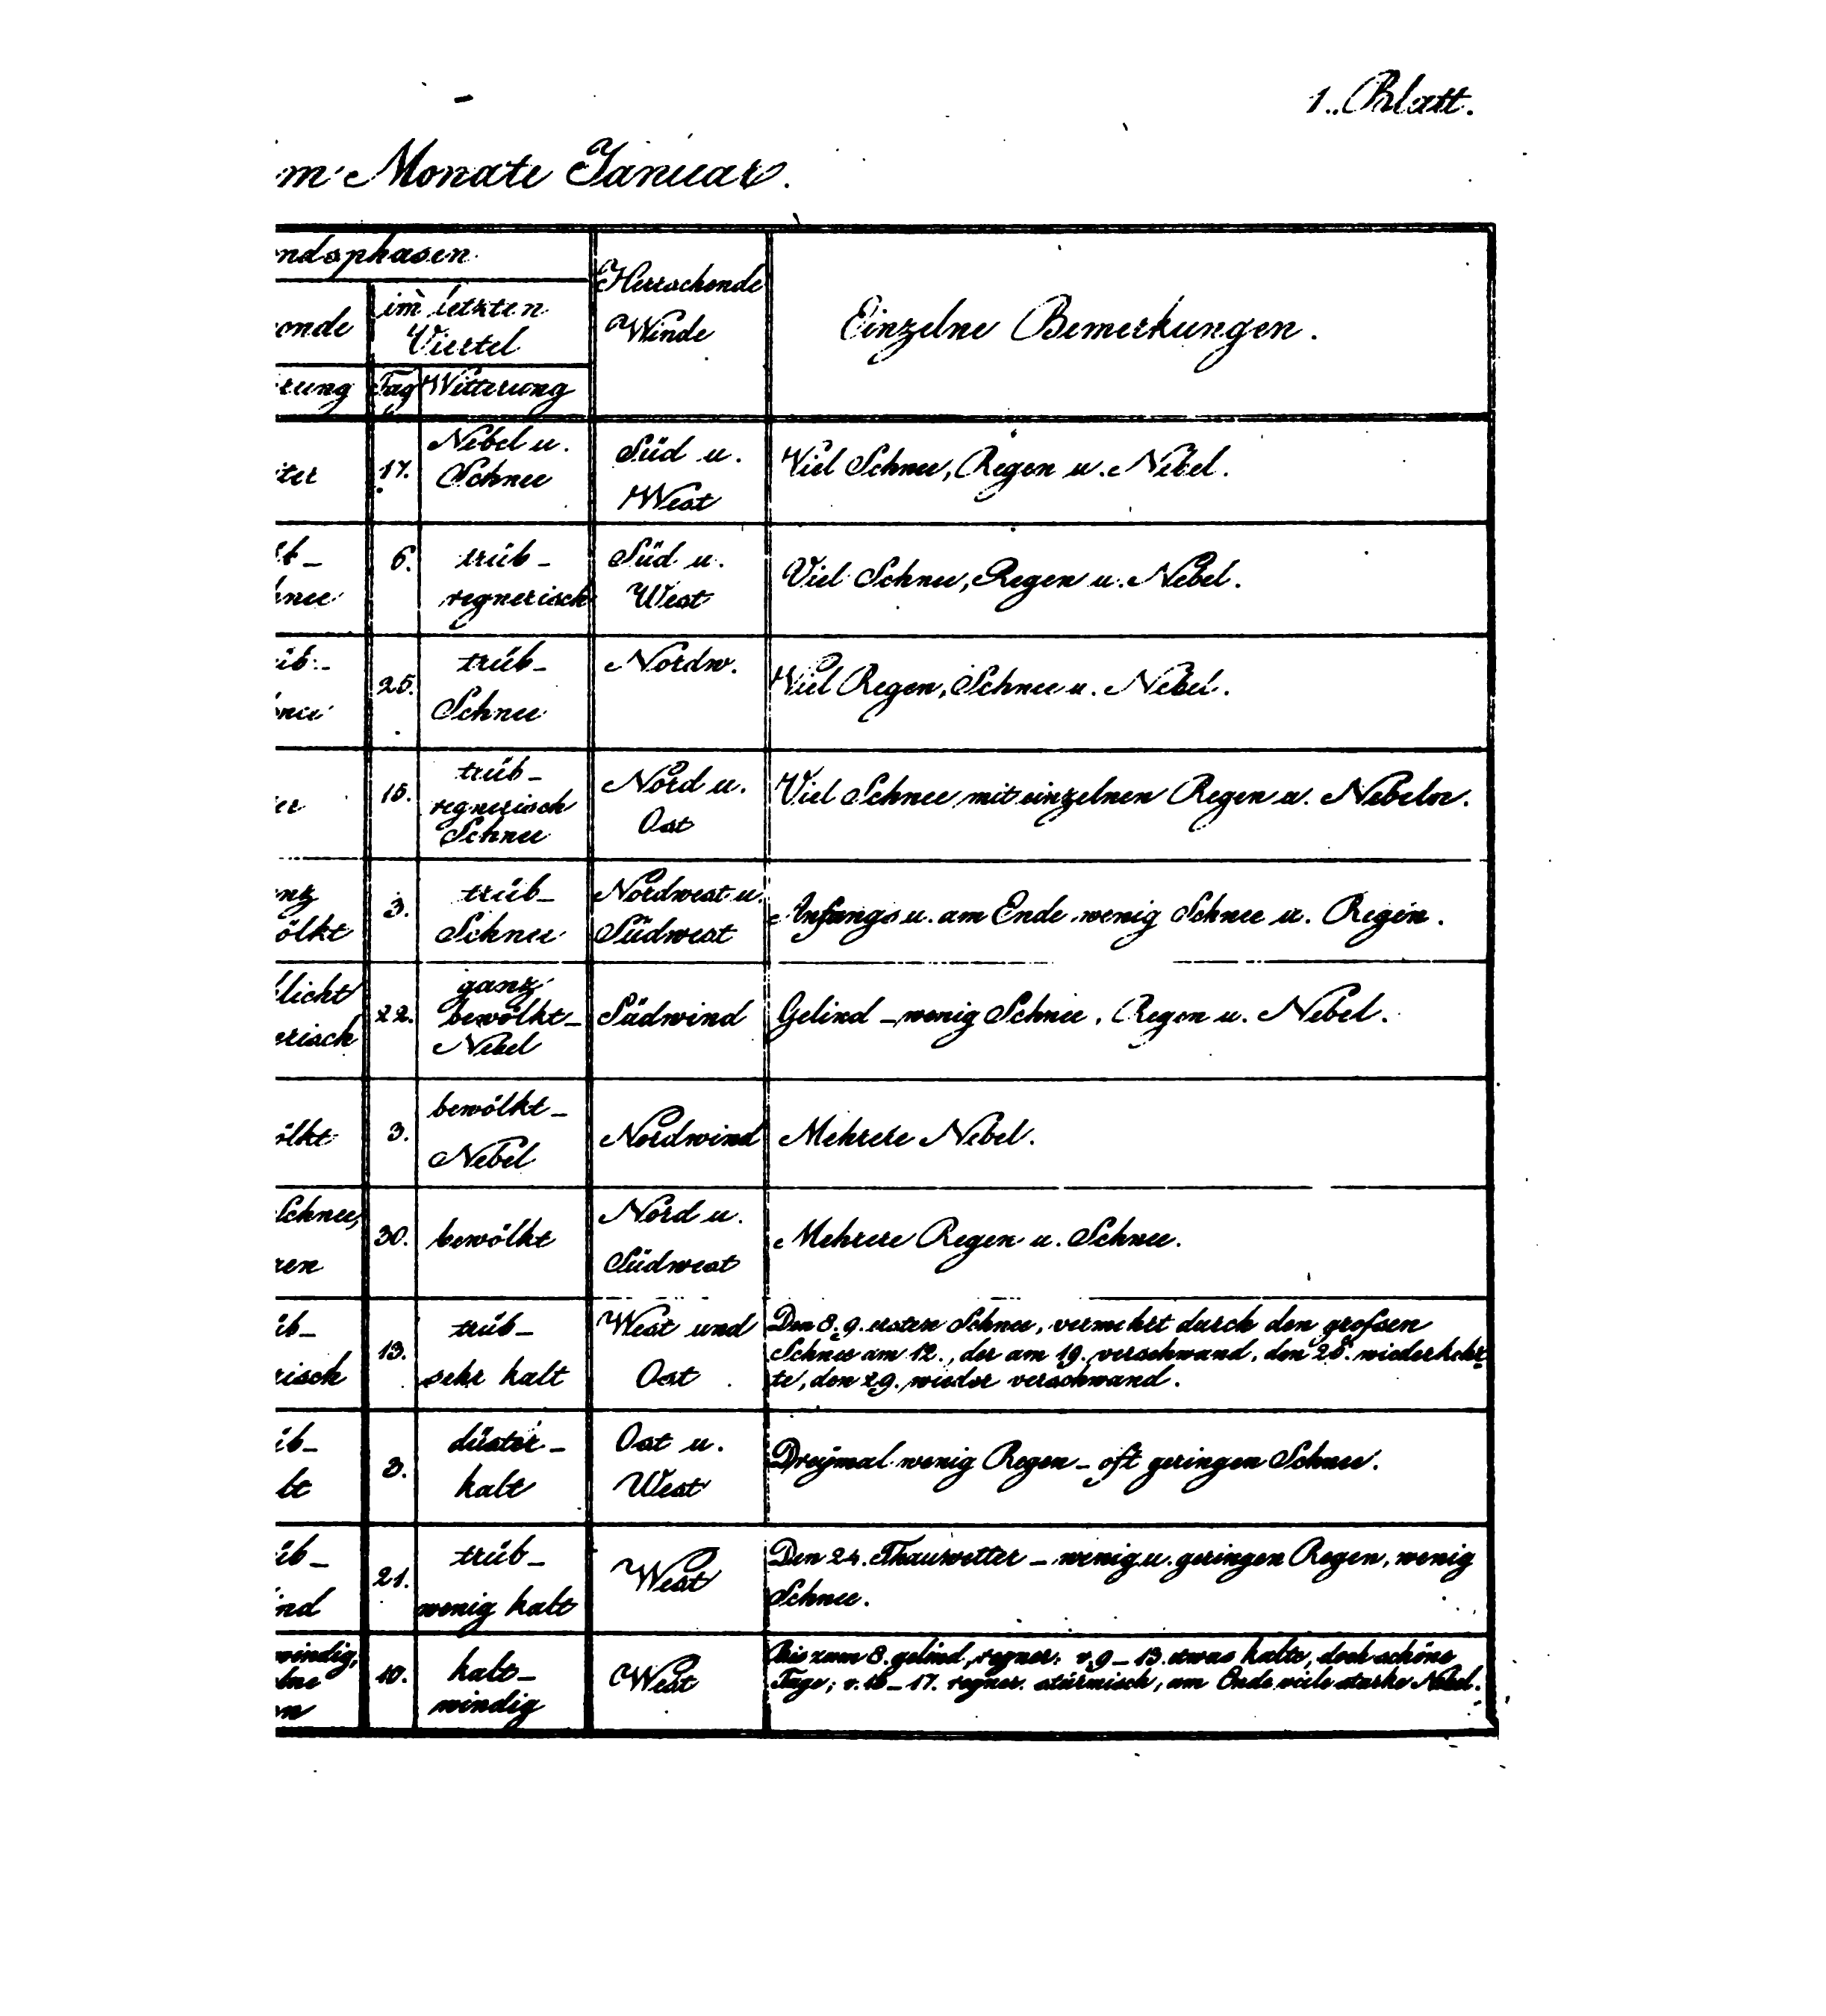 1. Blatt.
m Monate Januar.
ndsphasen
Herrschende
Winde
Einzelne Bemerkungen.
onde
im letzten
Viertel
rung
Tag
Witterung
ter
17.
Nebel u.
Schnee
Süd u.
West
Viel Schnee, Regen u. Nebel.
üb_
hnee
6.
trüb_
regnerisch
Süd u.
West
Viel Schnee, Regen u. Nebel.
üb_
nee
25.
trüb_
Schnee
Nordw.
Viel Regen, Schnee u. Nebel.
er
15.
trüb_
regnerisch
Schnee
Nord u.
Ost
Viel Schnee mit einzelnen Regen u. Nebeln.
nz
ölkt
3.
trüb_
Schnee
Nordwest u.
Südwest
Anfangs u. am Ende wenig Schnee u. Regen.
licht
erisch
22.
ganz
bewölkt_
Nebel
Südwind
Gelind _ wenig Schnee, Regen u. Nebel.
ölkt
3.
bewölkt_
Nebel
Nordwind
Mehrere Nebel.
Schnee,
ren
30.
bewölkt
Nord u.
Südwest
Mehrere Regen u. Schnee.
üb_
risch
13.
trüb_
sehr kalt
West und
Ost
Den 8. 9. ersten Schnee, vermehrt durch den großen
Schnee am 12., der am 19. verschwand, den 28. wiederkehr
te, den 29. wieder verschwand.
üb_
lt
3.
düster_
kalt
Ost u.
West
Dreymal wenig Regen _ oft geringen Schnee.
üb_
ind
21.
trüb_
wenig kalt
West
Den 24. Thauwetter _ wenig u. geringen Regen, wenig
Schnee.
windig,
n
10.
kalt_
windig
West
Bis zum 8. gelind, regner. v. 9_13. etwas kalte, doch schöne
Tage; v. 16_17. regner. stürmisch, am Ende viele starke Nebel.